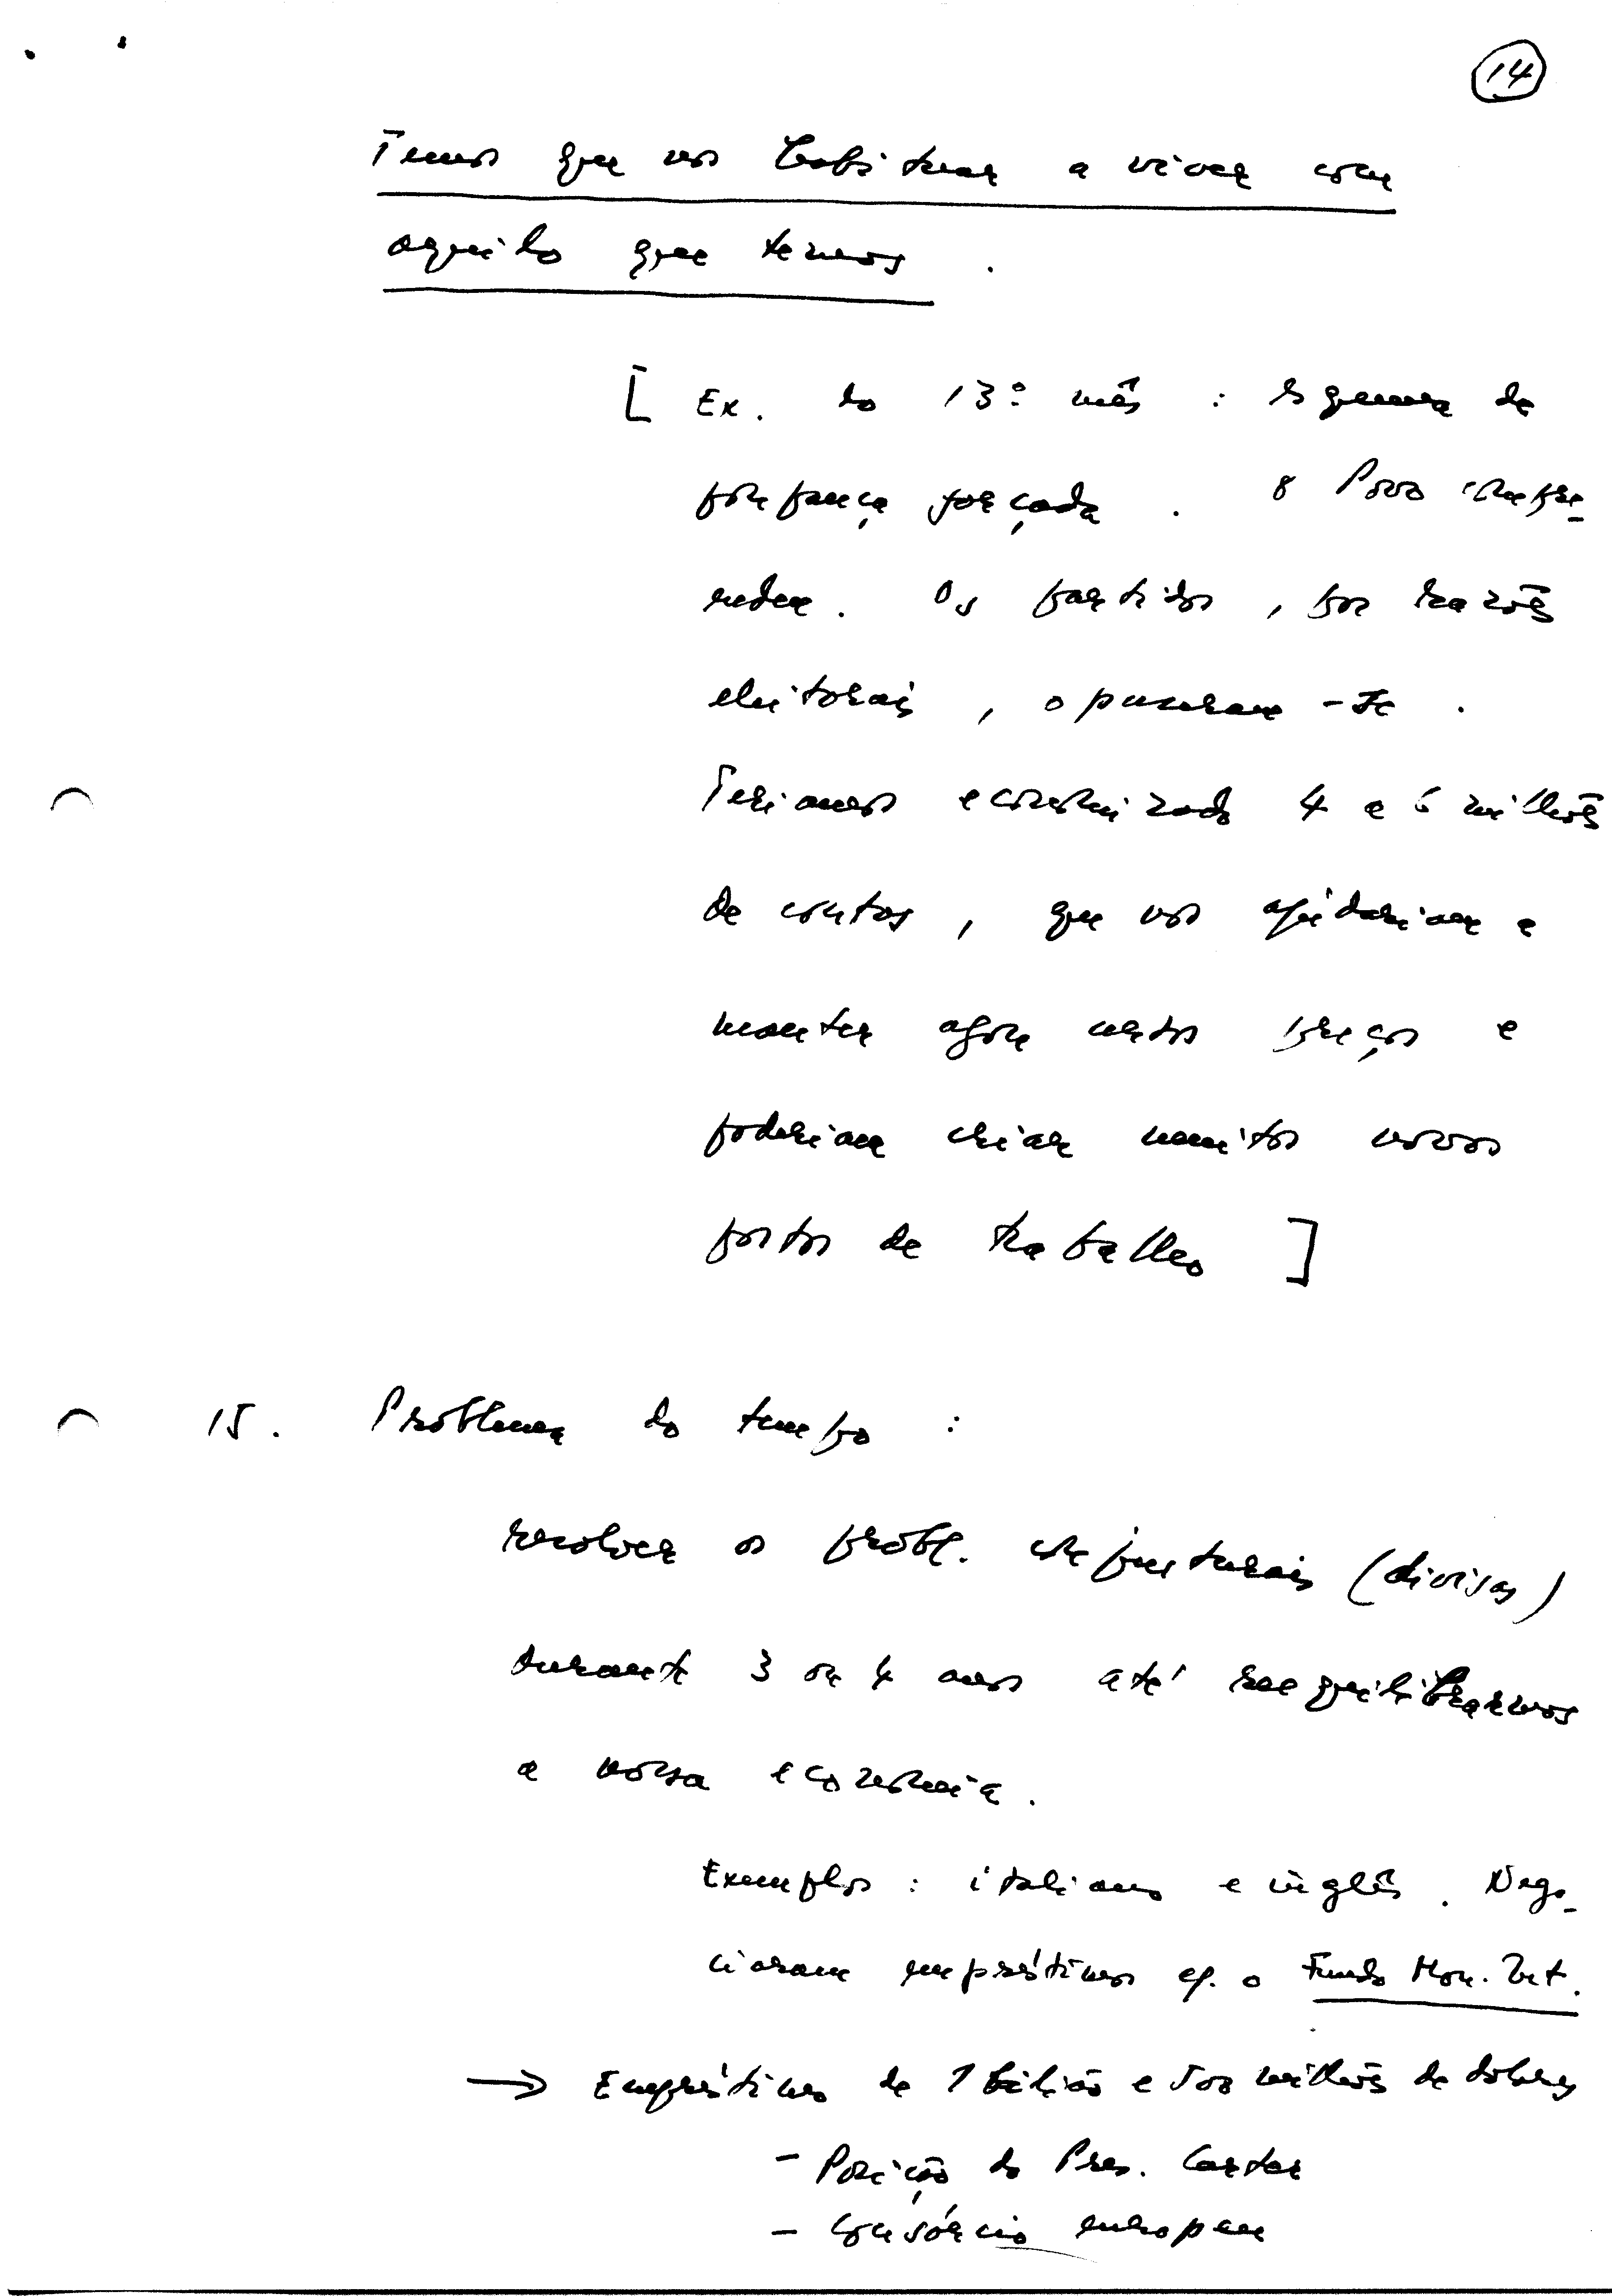 14
Temos que nos habituar a viver com
aquilo que temos.
[Ex. do 13º mês: esquema de
poupança forçada. O Povo compre-
endeu. Os partidos, por razões
eleitorais, opuseram-se.
Teríamos economizado 4 a 6 milhões
de contos, que nos ajudariam a
manter agora certos preços e
poderiam criar muitos novos
postos de trabalho]
15. Problema do tempo:
resolver os probl. conjunturais (divisas)
durante 3 ou 4 anos até reequilibrarmos
a nossa economia.
Exemplos: italiano e inglês. Nego-
ciaram empréstimos c/ o Fundo Mon. Int.
→ Empréstimo de 1 bilião e 500 milhões de dólares
- Posição do Pres. Carter
- Consórcio europeu